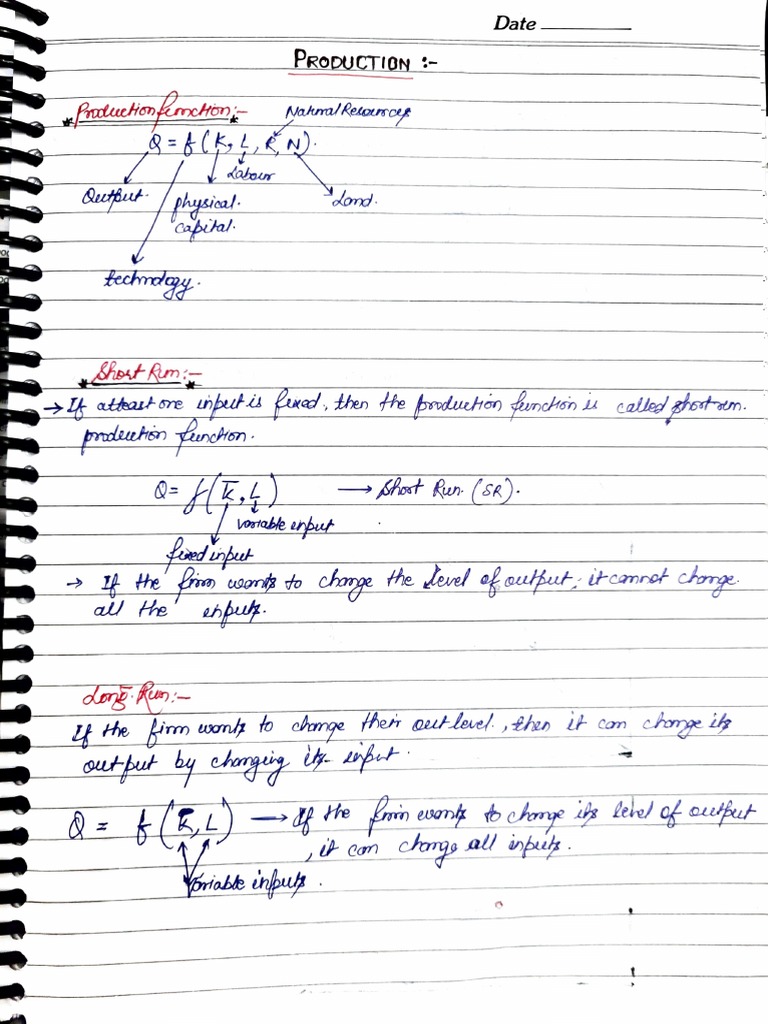 Date
PRODUCTION :-
* Production function:- *
Natural Resources
Q = f (K, L, R, N).
Labour
Output. physical Land.
capital.
technology.
* Short Run:- *
→ If atleast one input is fixed, then the production function is called short run.
production function.
Q = f(K̄, L) → Short Run. (SR).
variable input
fixed input
→ If the firm wants to change the level of output, it cannot change
all the inputs.
Long-Run:-
If the firm wants to change their out level, then it can change its
output by changing its input.
Q = f (K̄, L) → If the firm wants to change its level of output
, it can change all inputs.
Variable inputs.